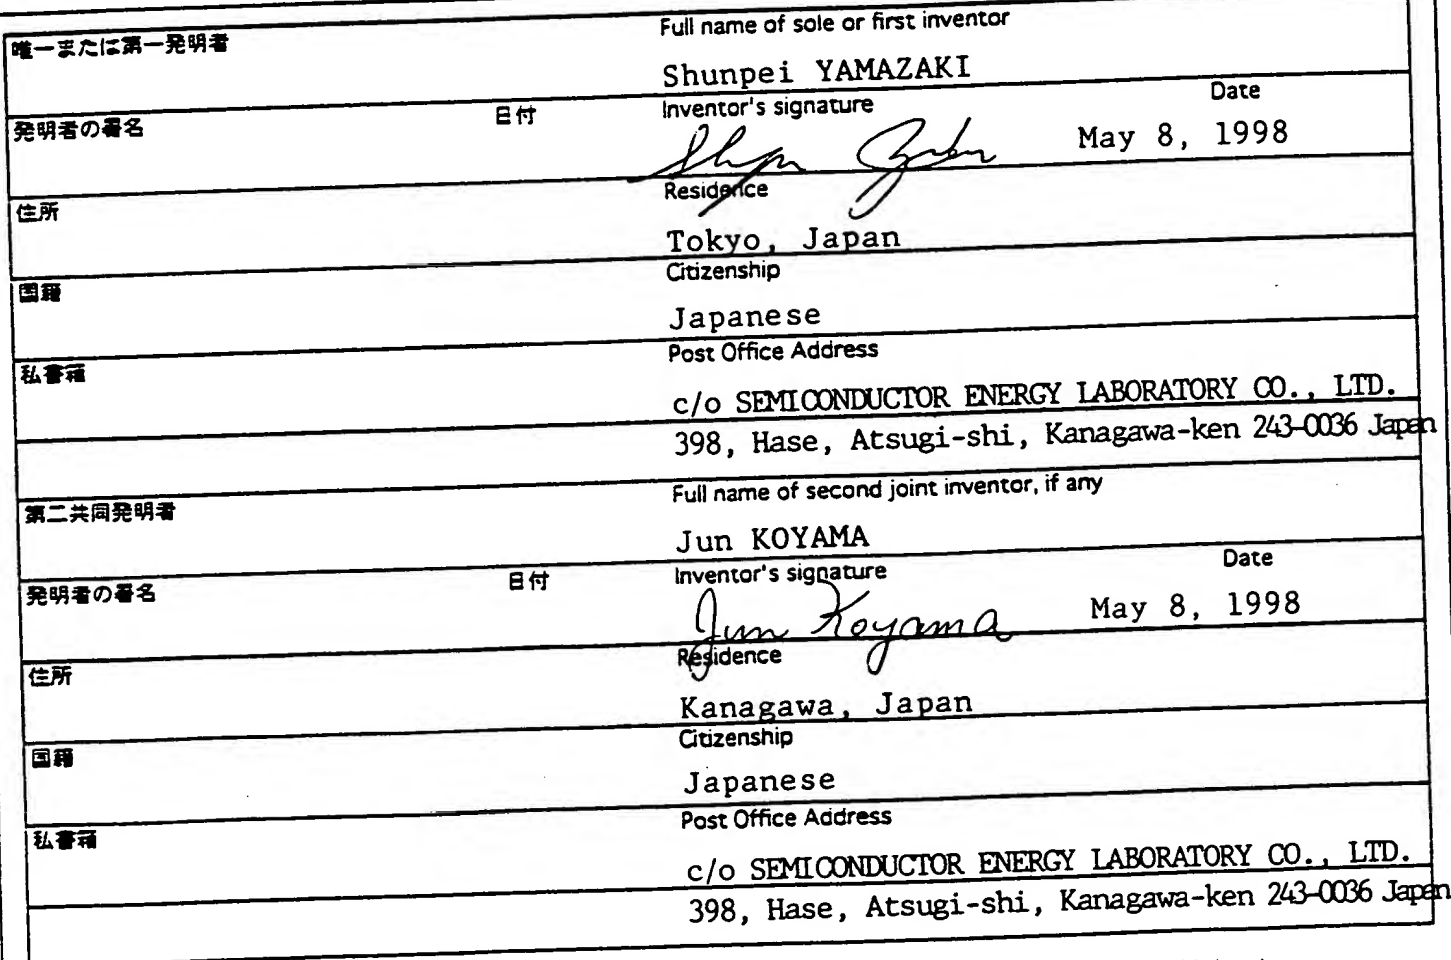 唯一または第一発明者
Full name of sole or first inventor
Shunpei YAMAZAKI
発明者の署名
日付
Inventor's signature
Date
May 8, 1998
住所
Residence
Tokyo, Japan
国籍
Citizenship
Japanese
私書箱
Post Office Address
c/o SEMICONDUCTOR ENERGY LABORATORY CO., LTD.
398, Hase, Atsugi-shi, Kanagawa-ken 243-0036 Japan
第二共同発明者
Full name of second joint inventor, if any
Jun KOYAMA
発明者の署名
日付
Inventor's signature
Date
Jun Koyama
May 8, 1998
住所
Residence
Kanagawa, Japan
国籍
Citizenship
Japanese
私書箱
Post Office Address
c/o SEMICONDUCTOR ENERGY LABORATORY CO., LTD.
398, Hase, Atsugi-shi, Kanagawa-ken 243-0036 Japan